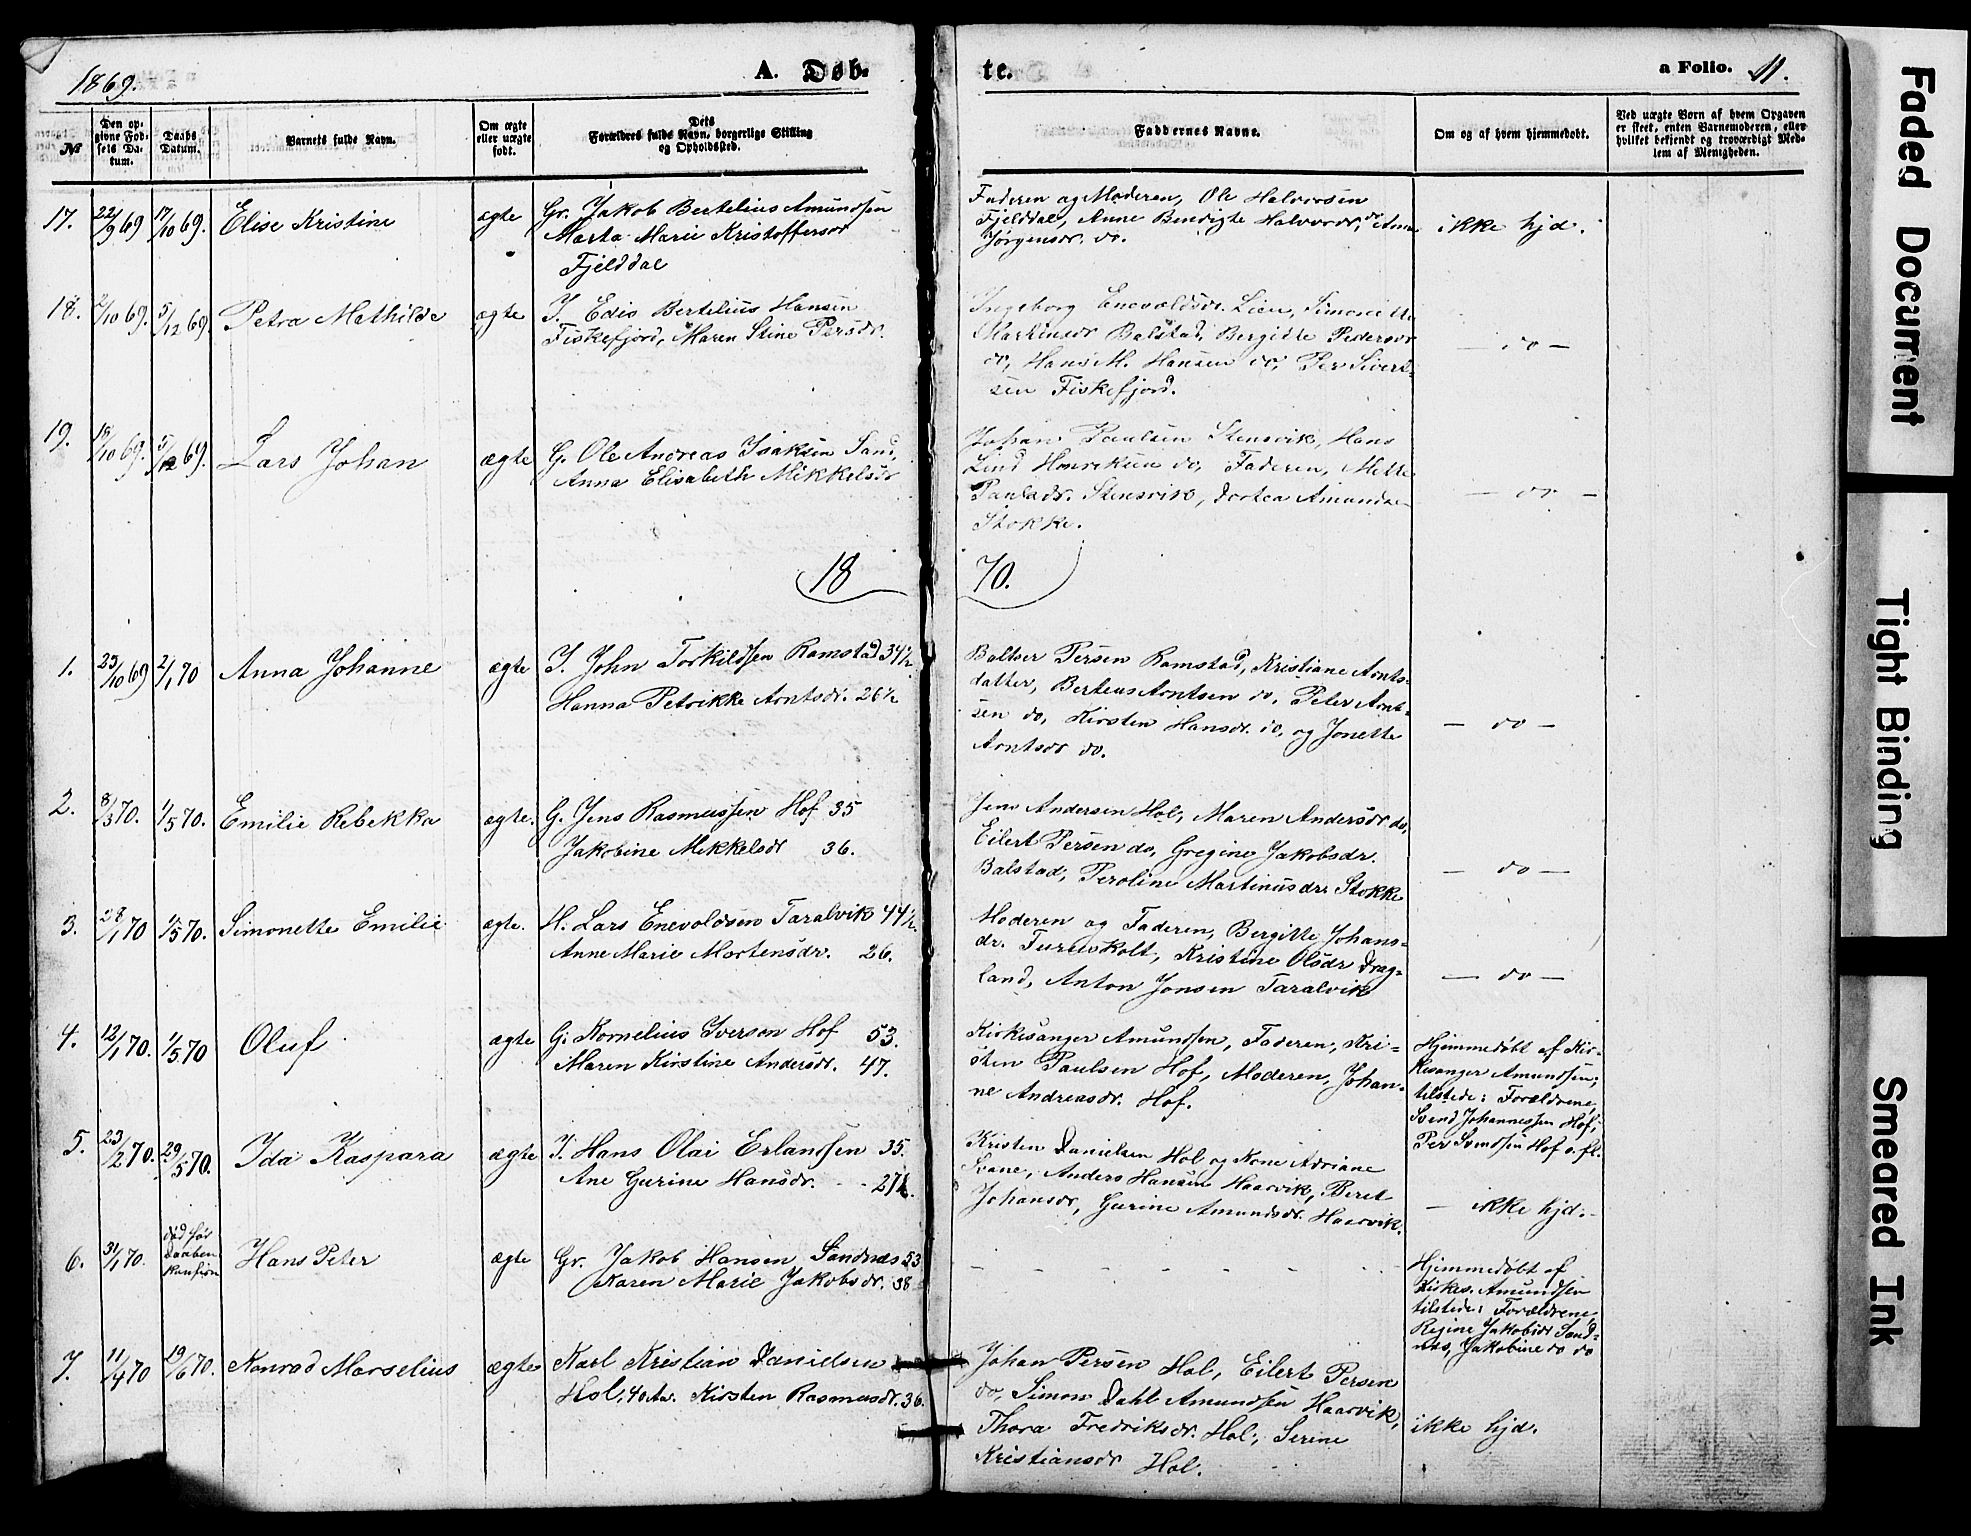 1869.
A. Døb-
te.
a Folio. 11.
№
Den op-
givne Fød-
sels Da-
tum.
Daabs
Datum.
Barnets fulde Navn.
Om ægte
eller uægte
født.
Dets
Forældres fulde Navn, borgerlige Stilling
og Opholdssted.
Faddernes Navne.
Om og af hvem hjemmedøbt.
Ved uægte Børn af hvem Opgaven
er skeet, enten Barnemoderen, eller
hvilket bekjendt og troværdigt Med-
lem af Menigheden.
17. 22/9 69 17/10 69. Elise Kristine ægte
Gr. Jakob Bertelius Amundsen
Marta Marie Kristoffersdr
Fjelddal
Faderen og Moderen, Ole Halvorsen
Fjelddal, Anne Bendigte Halvordr. do, Anne
Jørgensdr. do.
ikke hjd.
18. 2/10 69. 5/12 69. Petra Mathilde ægte
I. Edis Bertelius Hansen
Fiskefjord, Maren Stine Persdr.
Ingeborg Enevoldsdr. Lien, Simonette
Martinsdr Balstad, Bergitte Pedersdr
do, Hans M. Hansen do, Per Sivert-
sen Fiskefjord.
— do —
19. 18/10 69. 5/12 69. Lars Johan ægte
G. Ole Andreas Isaksen Sand,
Anna Elisabeth Mikkelsdr
Johan Paulsen Stensvik, Hans
Lind Henriksen do, Faderen, Mette
Paulsdr. Stensvik, Dortea Amundsdr
Stokke.
— do —
18 70.
1. 25/10 69 2/1 70 Anna Johanne ægte
I. John Torkildsen Ramstad 34½
Hanna Petrikke Arntsdr. 26½
Baltser Persen Ramstad, Kristiane Arnts-
datter, Berteus Arntsen do, Peter Arnt-
sen do, Kirsten Hansdr. do, og Jonette
Arntsdr do.
— do —
2. 8/3 70. 1/5 70. Emilie Rebekka ægte.
G. Jens Rasmussen Hof 35
Jakobine Mikkelsdr 36.
Jens Andersen Hol, Maren Andersdr do,
Eilert Persen do, Gregine Jakobsdr.
Balstad, Peroline Martinusdr Stokke
— do —
3. 28/1 70 1/5 70. Simonette Emilie ægte.
H. Lars Enevoldsen Taralvik 44½
Anne Marie Mortensdr. 26.
Moderen og Faderen, Bergitte Johans-
dr. Furuskolt, Kristine Olsdr Drag-
land, Anton Jonsen Taralvik
— do —
4. 12/1 70. 1/5 70 Oluf ægte
G. Kornelius Iverson Hof 53.
Maren Kirstine Andersdr. 47.
Kirkesanger Amundsen, Faderen, Kri-
sten Paulsen Hof, Moderen, Johan-
ne Andreasdr. Hof.
Hjemmedøbt af Kir-
kesanger Amundsen;
tilstede: Forældrene,
Svend Johannessen Hof,
Per Svendsen Hof o. fl.
5. 23/2 70. 29/5 70. Ida Kaspara ægte
I. Hans Olai Erlandsen 35.
Ane Gurine Hansdr. - - 27½.
Kristen Danielsen Hol og Kone Adriane
Svane, Anders Hansen Haarvik, Beret
Johansdr, Gurine Amundsdr. Haarvik.
— ikke hjd. -
6. 31/1 70. død før
Daaben
Hans Peter ægte
Gr. Jakob Hansen Sandnæs 53
Karen Marie Jakobsdr. 38
- - - - - -
Hjemmedøbt af
Kirkes. Amundsen
tilstede: Forældrene,
Regine Jakobsdr Sand-
næs, Jakobine do do
7. 11/4 70 19/6 70. Konrad Marselius ægte
Karl Kristian Danielsen
Hol, 40 Aar. Kirsten Rasmusdr. 36.
Johan Persen Hol, Eilert Persen
do, Simon Dahl Amundsen Haarvik,
Thora Fredriksdr. Hol, Serine
Kristiansdr Hol.
ikke hjd.
Faded Document
Tight Binding
Smeared Ink